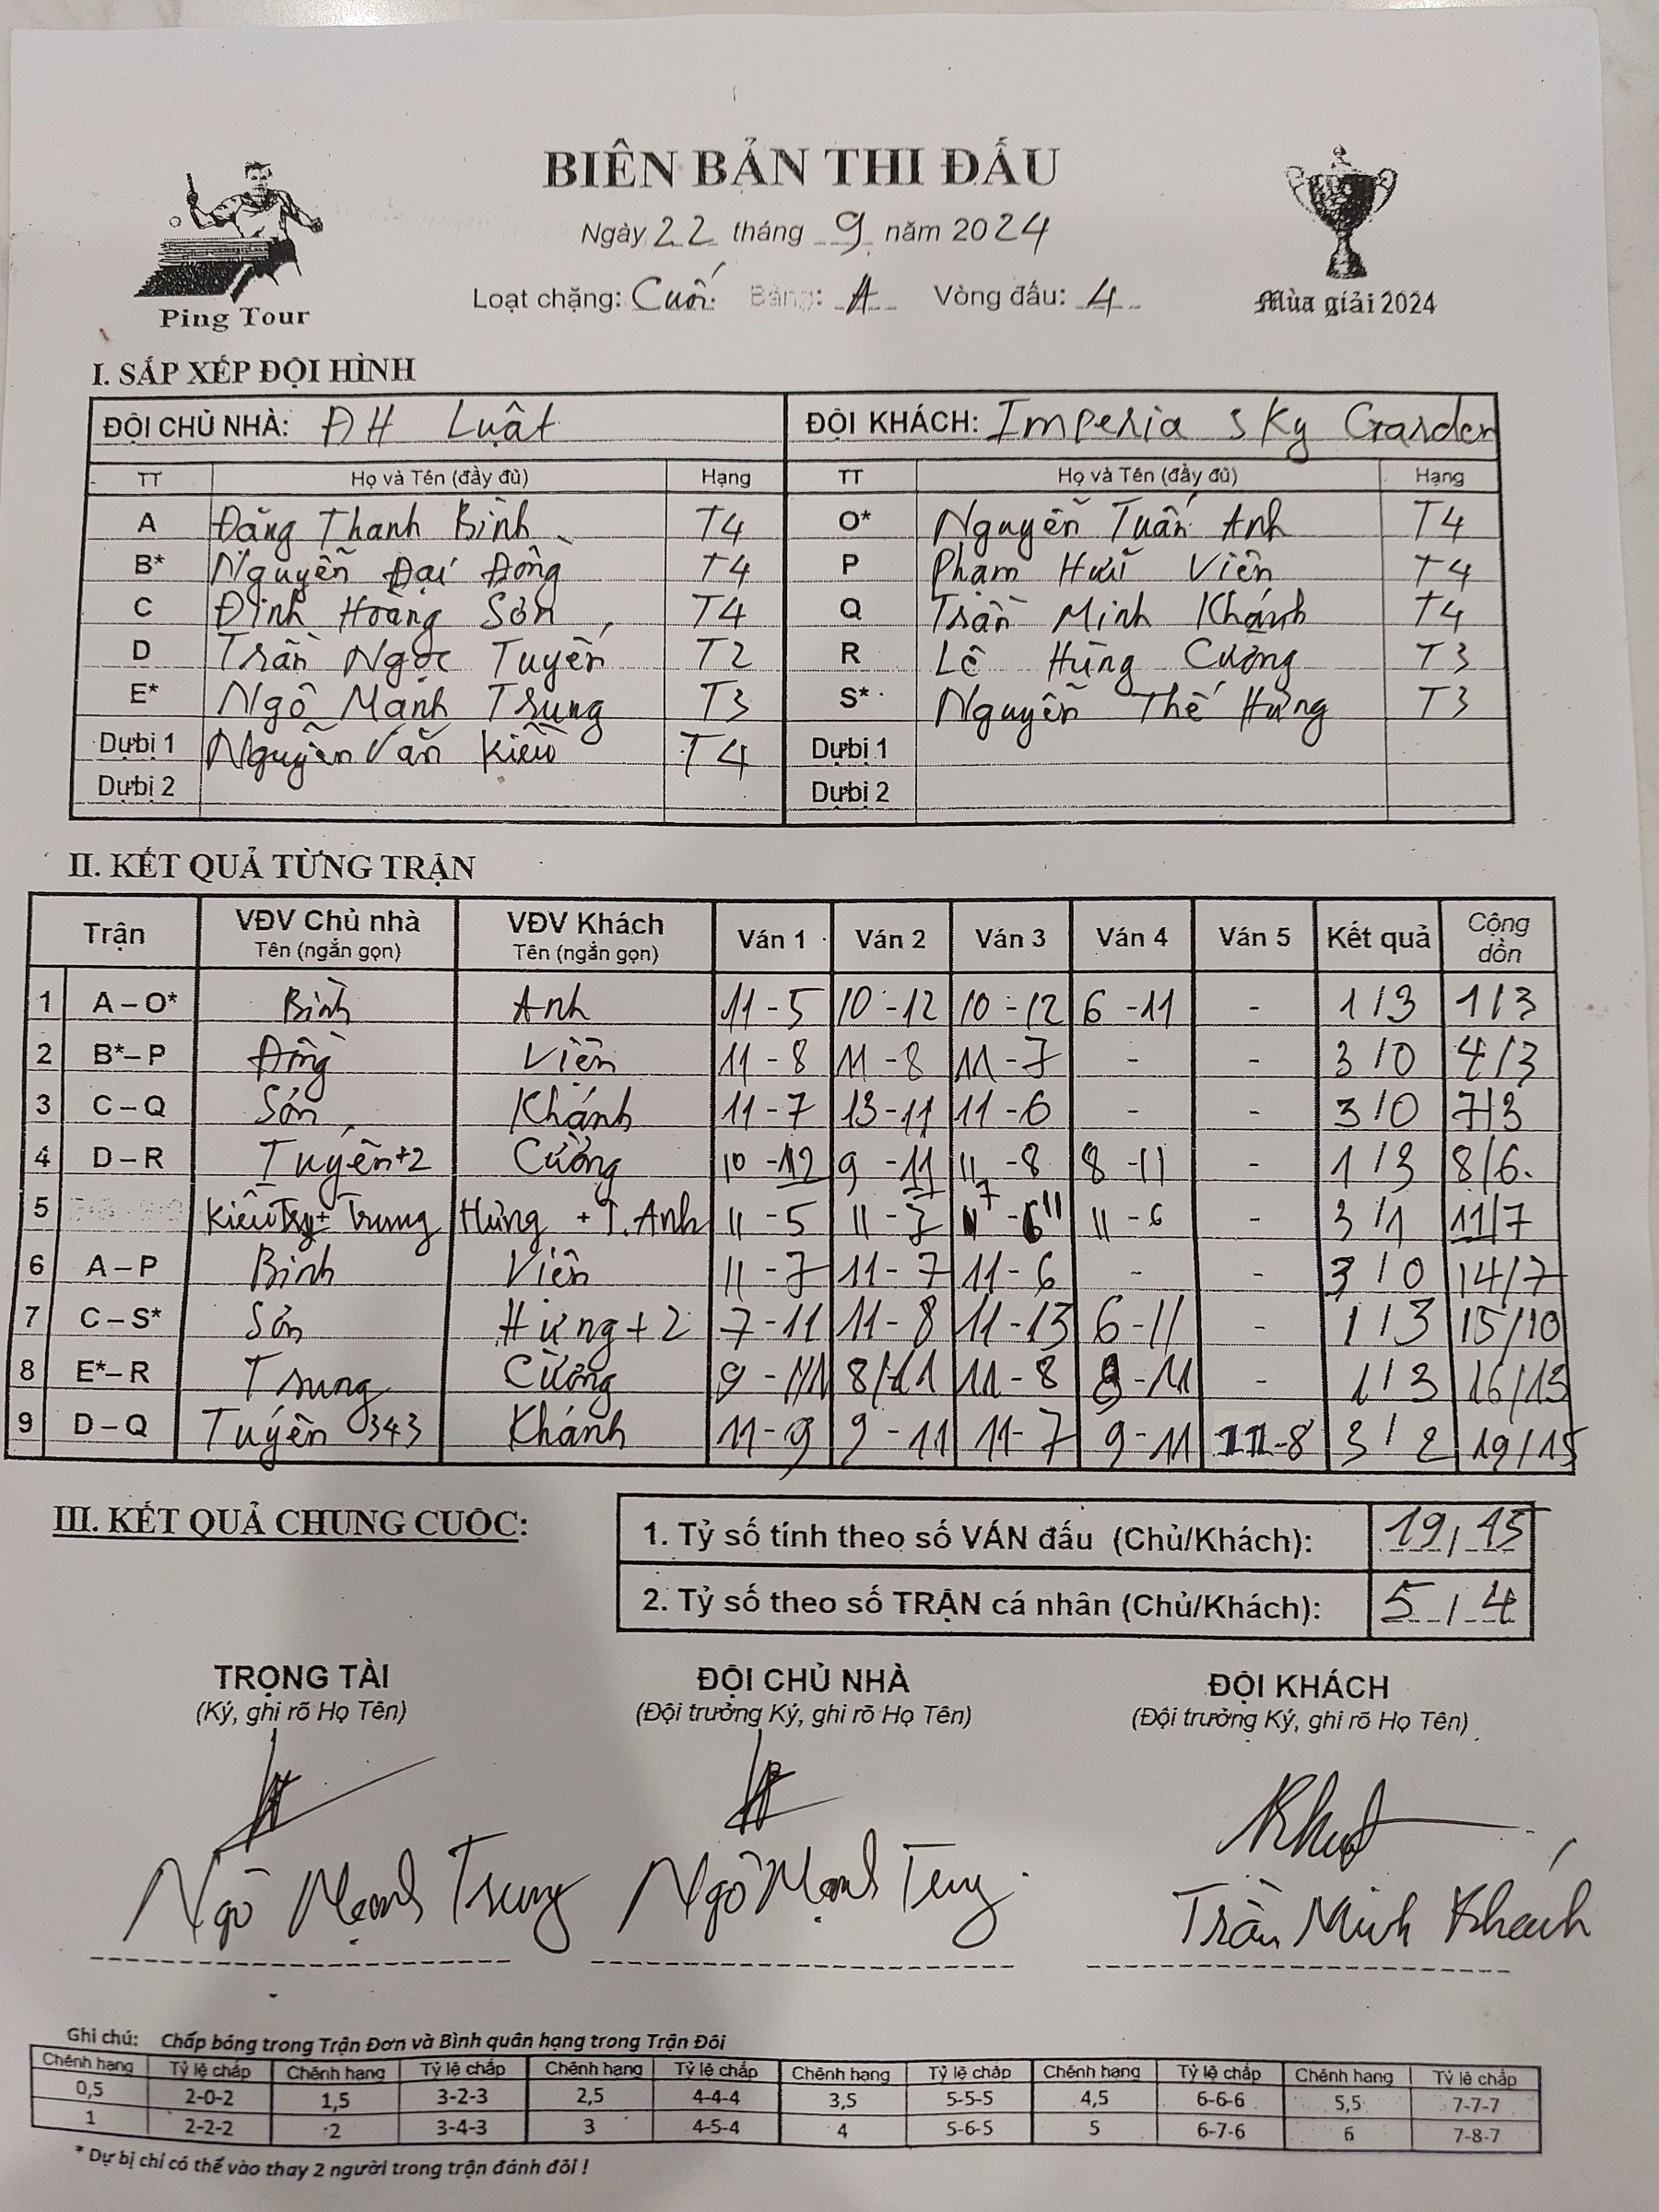 BIÊN BẢN THI ĐẤU
Ngày 22 tháng 9 năm 2024
Loạt chặng: Cuối Bảng: A Vòng đấu: 4
Ping Tour
Mùa giải 2024
I. SẮP XẾP ĐỘI HÌNH
ĐỘI CHỦ NHÀ: ĐH Luật ĐỘI KHÁCH: Imperia Sky Garden
TT Họ và Tên (đầy đủ) Hạng TT Họ và Tên (đầy đủ) Hạng
A Đăng Thanh Bình T4 O* Nguyễn Tuấn Anh T4
B* Nguyễn Đại Đồng T4 P Phạm Hữu Viên T4
C Đinh Hoàng Sơn T4 Q Trần Minh Khánh T4
D Trần Ngọc Tuyến T2 R Lê Hùng Cường T3
E* Ngô Mạnh Trung T3 S* Nguyễn Thế Hưng T3
Dự bị 1 Nguyễn Văn Kiều T4 Dự bị 1
Dự bị 2 Dự bị 2
II. KẾT QUẢ TỪNG TRẬN
Trận VĐV Chủ nhà Tên (ngắn gọn) VĐV Khách Tên (ngắn gọn) Ván 1 Ván 2 Ván 3 Ván 4 Ván 5 Kết quả Cộng dồn
1 A – O* Bình Anh 11 - 5 10 - 12 10 - 12 6 - 11 - 1 / 3 1 / 3
2 B* – P Đồng Viên 11 - 8 11 - 8 11 - 7 - - 3 / 0 4 / 3
3 C – Q Sơn Khánh 11 - 7 13 - 11 11 - 6 - - 3 / 0 7 / 3
4 D – R Tuyến +2 Cường 10 - 12 9 - 11 11 - 8 8 - 11 - 1 / 3 8 / 6.
5 Kiều + Trung Hưng + T. Anh 11 - 5 11 - 7 7 - 11 11 - 6 - 3 / 1 11 / 7
6 A – P Bình Viên 11 - 7 11 - 7 11 - 6 - - 3 / 0 14 / 7
7 C – S* Sơn Hưng + 2 7 - 11 11 - 8 11 - 13 6 - 11 - 1 / 3 15 / 10
8 E* – R Trung Cường 9 - 11 8 / 11 11 - 8 8 - 11 - 1 / 3 16 / 13
9 D – Q Tuyến 343 Khánh 11 - 9 9 - 11 11 - 7 9 - 11 11 - 8 3 / 2 19 / 15
III. KẾT QUẢ CHUNG CUỘC:
1. Tỷ số tính theo số VÁN đấu (Chủ/Khách): 19 / 15
2. Tỷ số theo số TRẬN cá nhân (Chủ/Khách): 5 / 4
TRỌNG TÀI ĐỘI CHỦ NHÀ ĐỘI KHÁCH
(Ký, ghi rõ Họ Tên) (Đội trưởng Ký, ghi rõ Họ Tên) (Đội trưởng Ký, ghi rõ Họ Tên)
Ngô Mạnh Trung Ngô Mạnh Trung Trần Minh Khánh
Ghi chú: Chấp bóng trong Trận Đơn và Bình quân hạng trong Trận Đôi
Chênh hạng Tỷ lệ chấp Chênh hạng Tỷ lệ chấp Chênh hạng Tỷ lệ chấp Chênh hạng Tỷ lệ chấp Chênh hạng Tỷ lệ chấp Chênh hạng Tỷ lệ chấp
0,5 2-0-2 1,5 3-2-3 2,5 4-4-4 3,5 5-5-5 4,5 6-6-6 5,5 7-7-7
1 2-2-2 2 3-4-3 3 4-5-4 4 5-6-5 5 6-7-6 6 7-8-7
* Dự bị chỉ có thể vào thay 2 người trong trận đánh đôi !